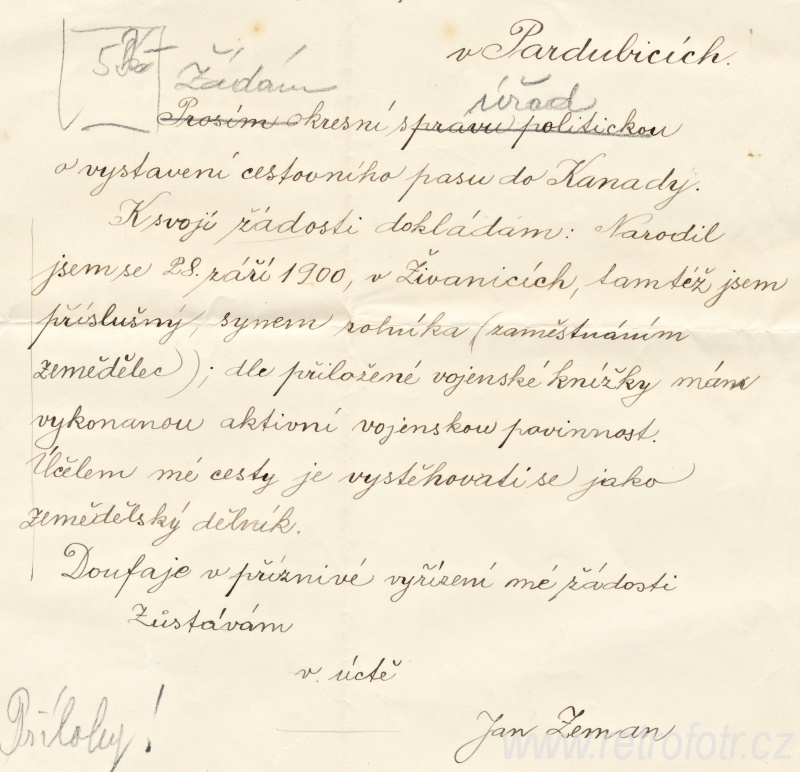 v Pardubicích.
5 Kč
Žádám úřad
Prosím okresní správu politickou
o vystavení cestovního pasu do Kanady.
K svojí žádosti dokládám: Narodil
jsem se 28. září 1900, v Živanicích, tamtéž jsem
příslušný, synem rolníka (zaměstnáním
zemědělec); dle přiložené vojenské knížky mám
vykonanou aktivní vojenskou povinnost.
Účelem mé cesty je vystěhovati se jako
zemědělský dělník.
Doufaje v příznivé vyřízení mé žádosti
Zůstávám
v úctě
Přílohy!
Jan Zeman
www.retrofotr.cz